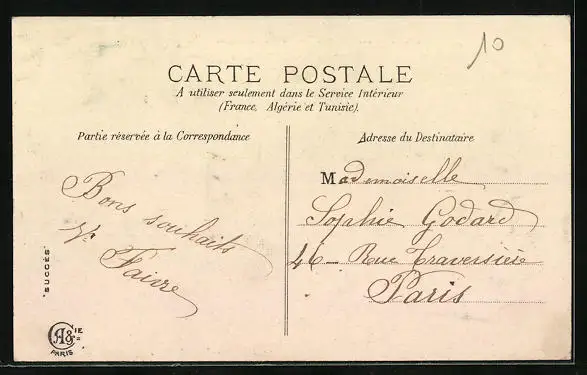 10
CARTE POSTALE
A utiliser seulement dans le Service Intérieur
(France, Algérie et Tunisie).
Partie réservée à la Correspondance
Bons souhaits
Faivre
"SUCCÈS"
CIE
PARIS
Adresse du Destinataire
Mademoiselle
Sophie Godard
46 - Rue Traversière
Paris